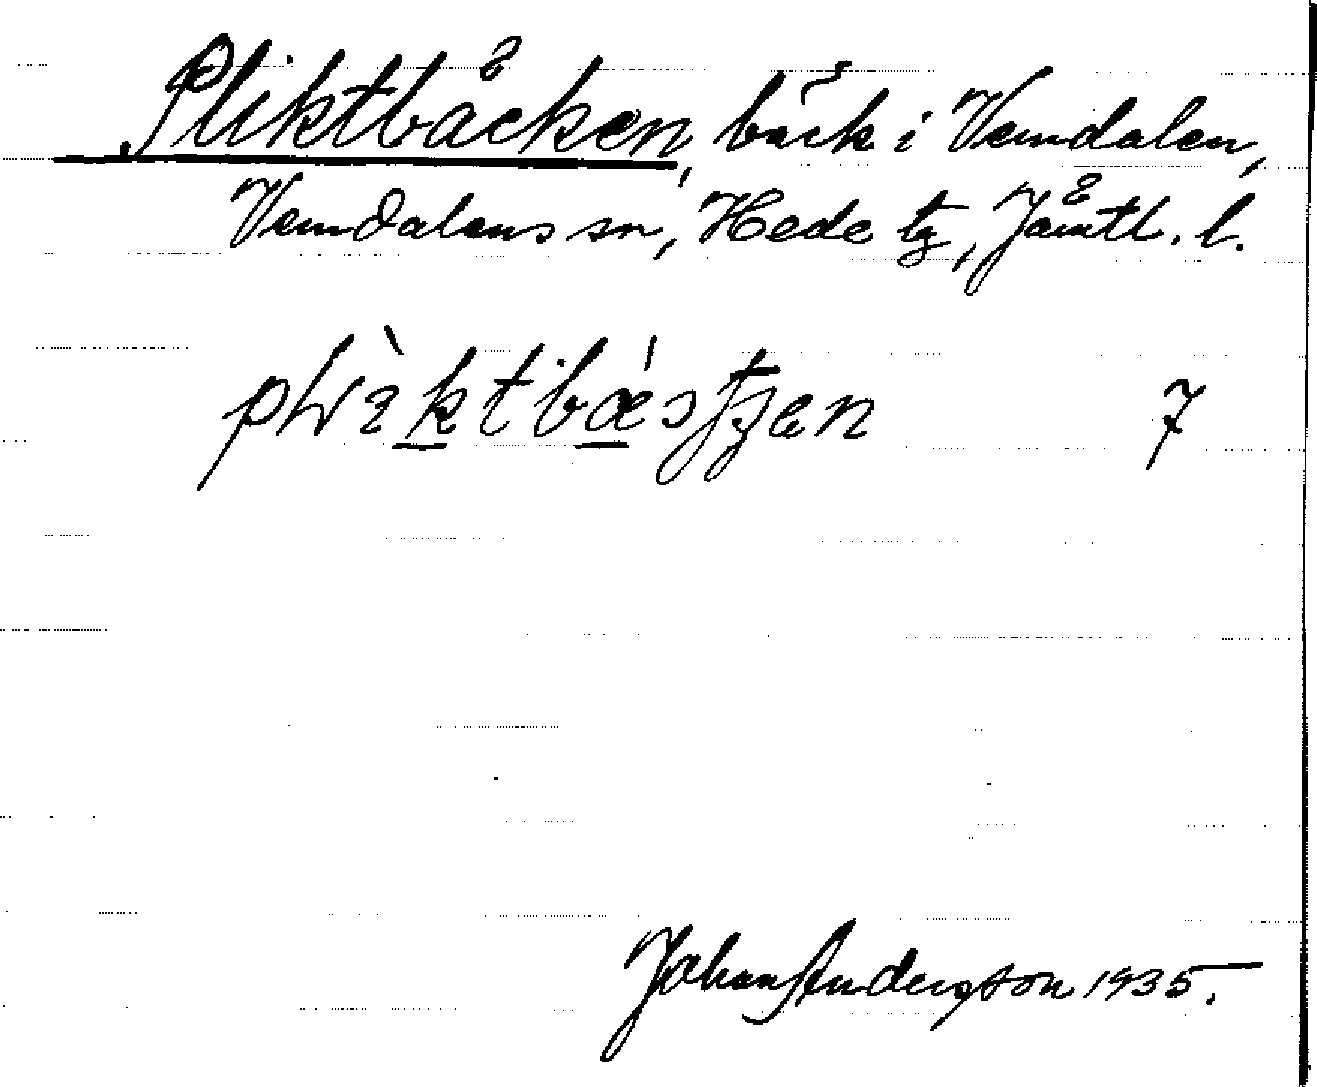 Pliktbäcken, bäck i Vemdalen,
Vemdalens sn, Hede tg, Jämtl. l.
7
Johan Anderson 1935.